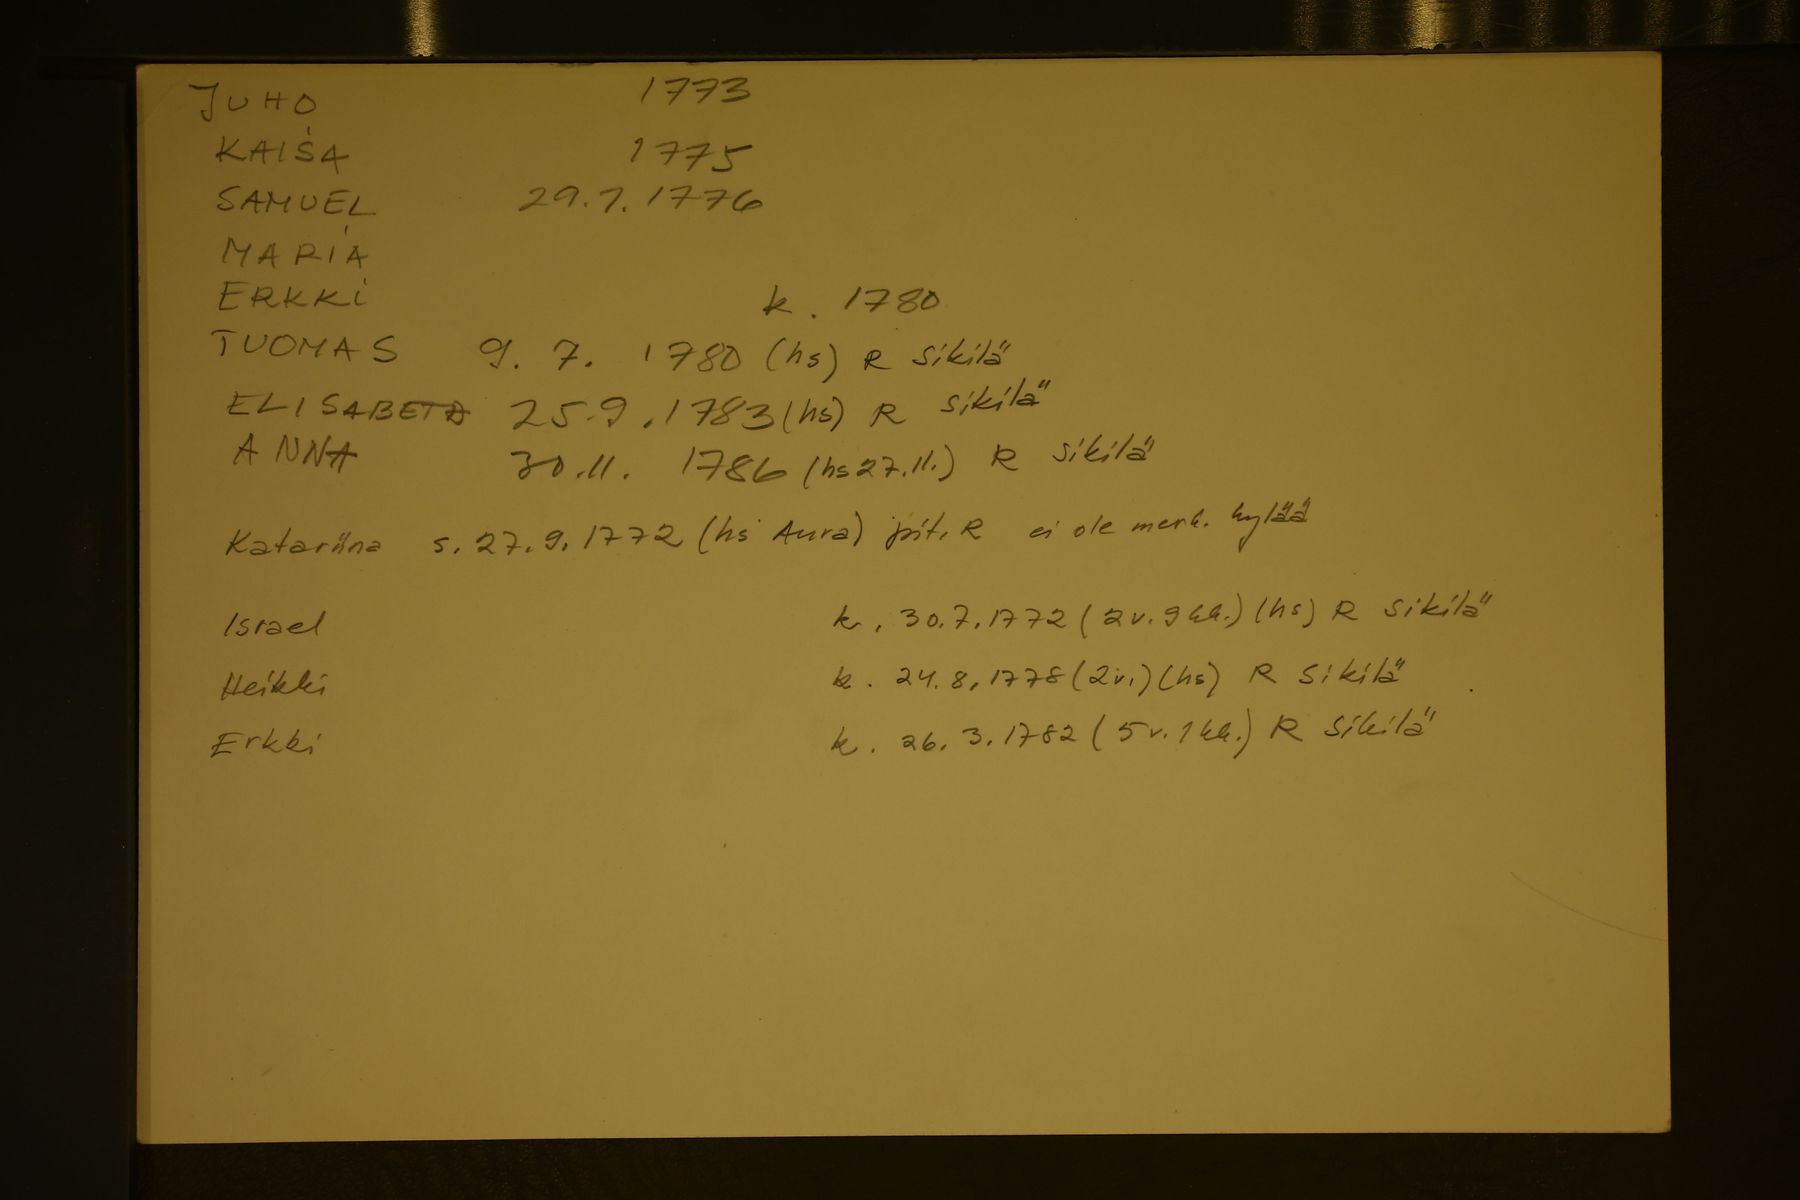 JUHO 1773
KAISA 1775
SAMUEL 29.7.1776
MARIA
ERKKI k. 1780
TUOMAS 9. 7. 1780 (hs) R Sikilä
ELISABETA 25.9.1783 (hs) R Sikilä
ANNA 30.11. 1786 (hs 27.11.) R Sikilä
Katariina s. 27.9.1772 (hs Aura) pit. R ei ole merk. kylää
Israel k. 30.7.1772 (2 v. 9 kk.) (hs) R Sikilä
Heikki k. 24.8.1778 (2 v.) (hs) R Sikilä
Erkki k. 26.3.1782 (5 v. 1 kk.) R Sikilä